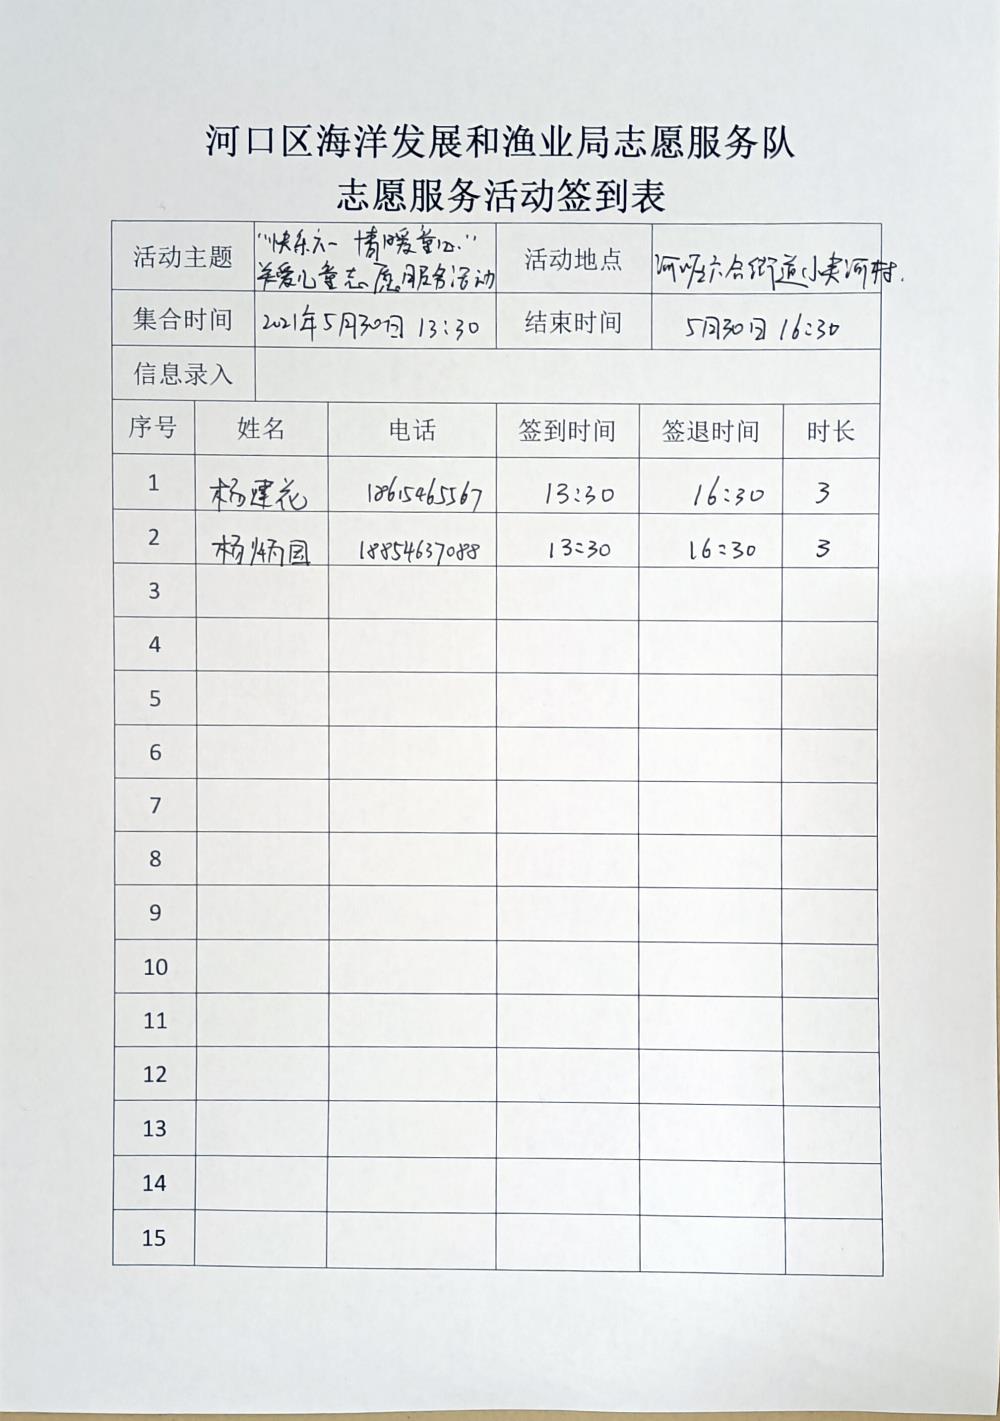 河口区海洋发展和渔业局志愿服务队
志愿服务活动签到表
活动主题 “快乐六一 情暖童心” 关爱儿童志愿服务活动 活动地点 河口区六合街道小夹河村.
集合时间 2021年5月30日 13:30 结束时间 5月30日 16:30
信息录入
序号 姓名 电话 签到时间 签退时间 时长
1 杨建花 18615465567 13:30 16:30 3
2 杨炳国 18854637088 13:30 16:30 3
3
4
5
6
7
8
9
10
11
12
13
14
15